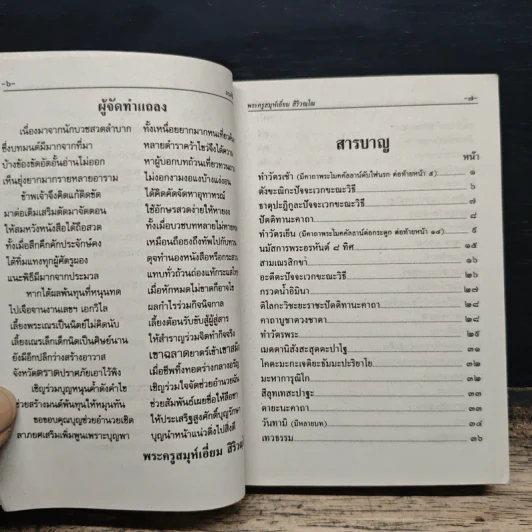 -๖-
ผู้จัดทำแถลง
เนื่องมาจากนักบวชสวดลำบาก
ซึ่งบทมนต์มีมากจากที่มา
บ้างข้องขัดอัดอั้นอ่านไม่ออก
เห็นยุ่งยากมากรายหลายอาราม
ข้าพเจ้าจึงคิดแก้ติดขัด
มาต่อเติมเสริมตัดมาจัดตอน
ให้สมหวังหนังสือได้ถือสวด
ทั้งเมื่อสึกตึกตักประจักษ์คง
ได้ทิ่มแทงทุกผู้ศัตรูผอง
แนะพิธีมีมากจากประมวล
หากได้ผลพ้นทุนที่หนุนทด
ไปเจือจานงานเลขา เอกวิไล
เลี้ยงพระเณรเป็นนิตย์ไม่คิดนับ
เลี้ยงเณรเล็กเด็กนิดเป็นศิษย์นาน
ยังมีอีกปลีกว่างสร้างอาวาส
จังหวัดตราดปราศภัยเอาไว้พิง
เชิญร่วมบุญหนุนค้ำดังคำไข
ช่วยสร้างมนต์พ้นทุนให้หมุนทัน
ขอขอบคุณบุญช่วยอำนวยเชิด
ลาภยศเสริมเพิ่มพูนเพราะบุญพา
ทั้งเหนื่อยยากมากทน
หลายตำราคว้าไขว่จึงได้
หาผู้บอกบทถ้วนเที่ยว
ไม่งอกงามงองแง
ได้คิดคัดจัดหาอุทาหรณ์
ใช้อักษรสวดง่ายให้หาย
ทั้งเมื่อบวชบทหลายไม่
เหมือนถือธงถึงทัพไป
ดุจทำนองหนังสือหรือ
แทบทั่วถ้วนถ่องแท้
เมื่อทักหมดไม่ขาดก็อาจ
ผลกำไรร่วมกิจนิจกาล
เลี้ยงต้อนรับขับสู้ผู้สู่สาร
ให้สำราญร่วมจิตทำกิจจริง
เขาฉลาดยาตร์เข้าเขาสมิง
เมื่อชีพทิ้งทอดร่างกลางอรัญ
เชิญร่วมใจจัดช่วยอำนวยฉัน
ช่วยสัมพันธ์เผยชื่อให้ลือชา
ให้ประเสริฐสูงศักดิ์บุญรักษา
บุญนำหน้าแน่วดิ่งไปสิ่งดี
พระครูสมุห์เอี่ยม สิริวณ
พระครูสมุห์เอี่ยม สิริวณฺโณ
-๗-
สารบาญ
หน้า
ทำวัตรเช้า (มีคาถาพระโมคคัลลาน์ดับไฟนรก ต่อท้ายหน้า ๕) ๑
ตังขะณิกะปัจจะเวกขะณะวิธี ๖
ธาตุปะฏิกูละปัจจะเวกขะณะวิธี ๗
ปัตติทานะคาถา ๘
ทำวัตรเย็น (มีคาถาพระโมคคัลลาน์ต่อกระดูก ต่อท้ายหน้า ๑๕) ๙
นมัสการพระอรหันต์ ๘ ทิศ ๑๕
สามเณรสิกขา ๑๖
อะตีตะปัจจะเวกขะณะวิธี ๒๖
กรวดน้ำอิมินา ๒๗
ติโลกะวิชะยะราชะปัตติทานะคาถา ๒๘
คาถาบูชาดวงชาตา ๒๘
ทำวัตรพระ ๒๕
เมตตานิสังสะสุตตะปาโฐ ๓๑
โคตะมะกะเจติยะธัมมะปะริยาโย ๓๒
มะหาการุณิโก ๓๒
สีลุทเทสะปาฐะ ๓๓
ตายะนะคาถา ๓๓
วันทามิ (มีหลายบท) ๓๔
เทวธรรม ๓๖